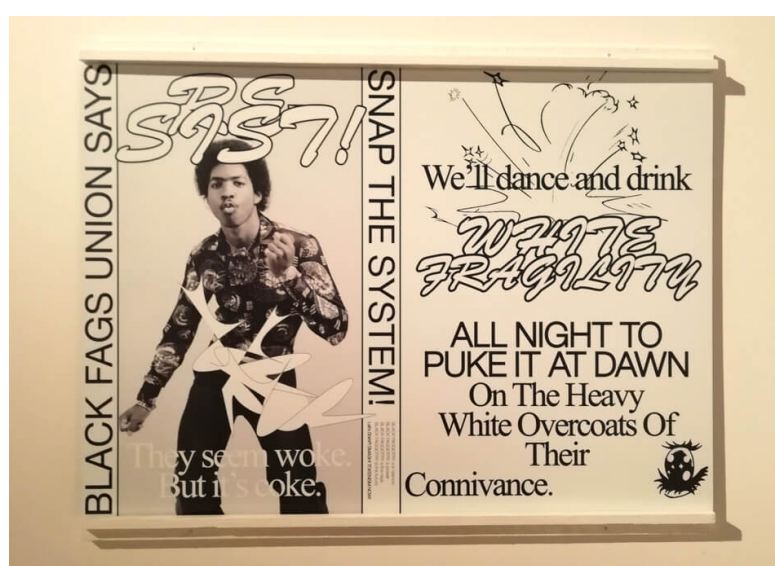 BLACK FAGS UNION SAYS
RE
SIST!
They seem woke.
But it's coke.
SNAP THE SYSTEM!
We'll dance and drink
WHITE
FRAGILITY
ALL NIGHT TO
PUKE IT AT DAWN
On The Heavy
White Overcoats Of
Their
Connivance.